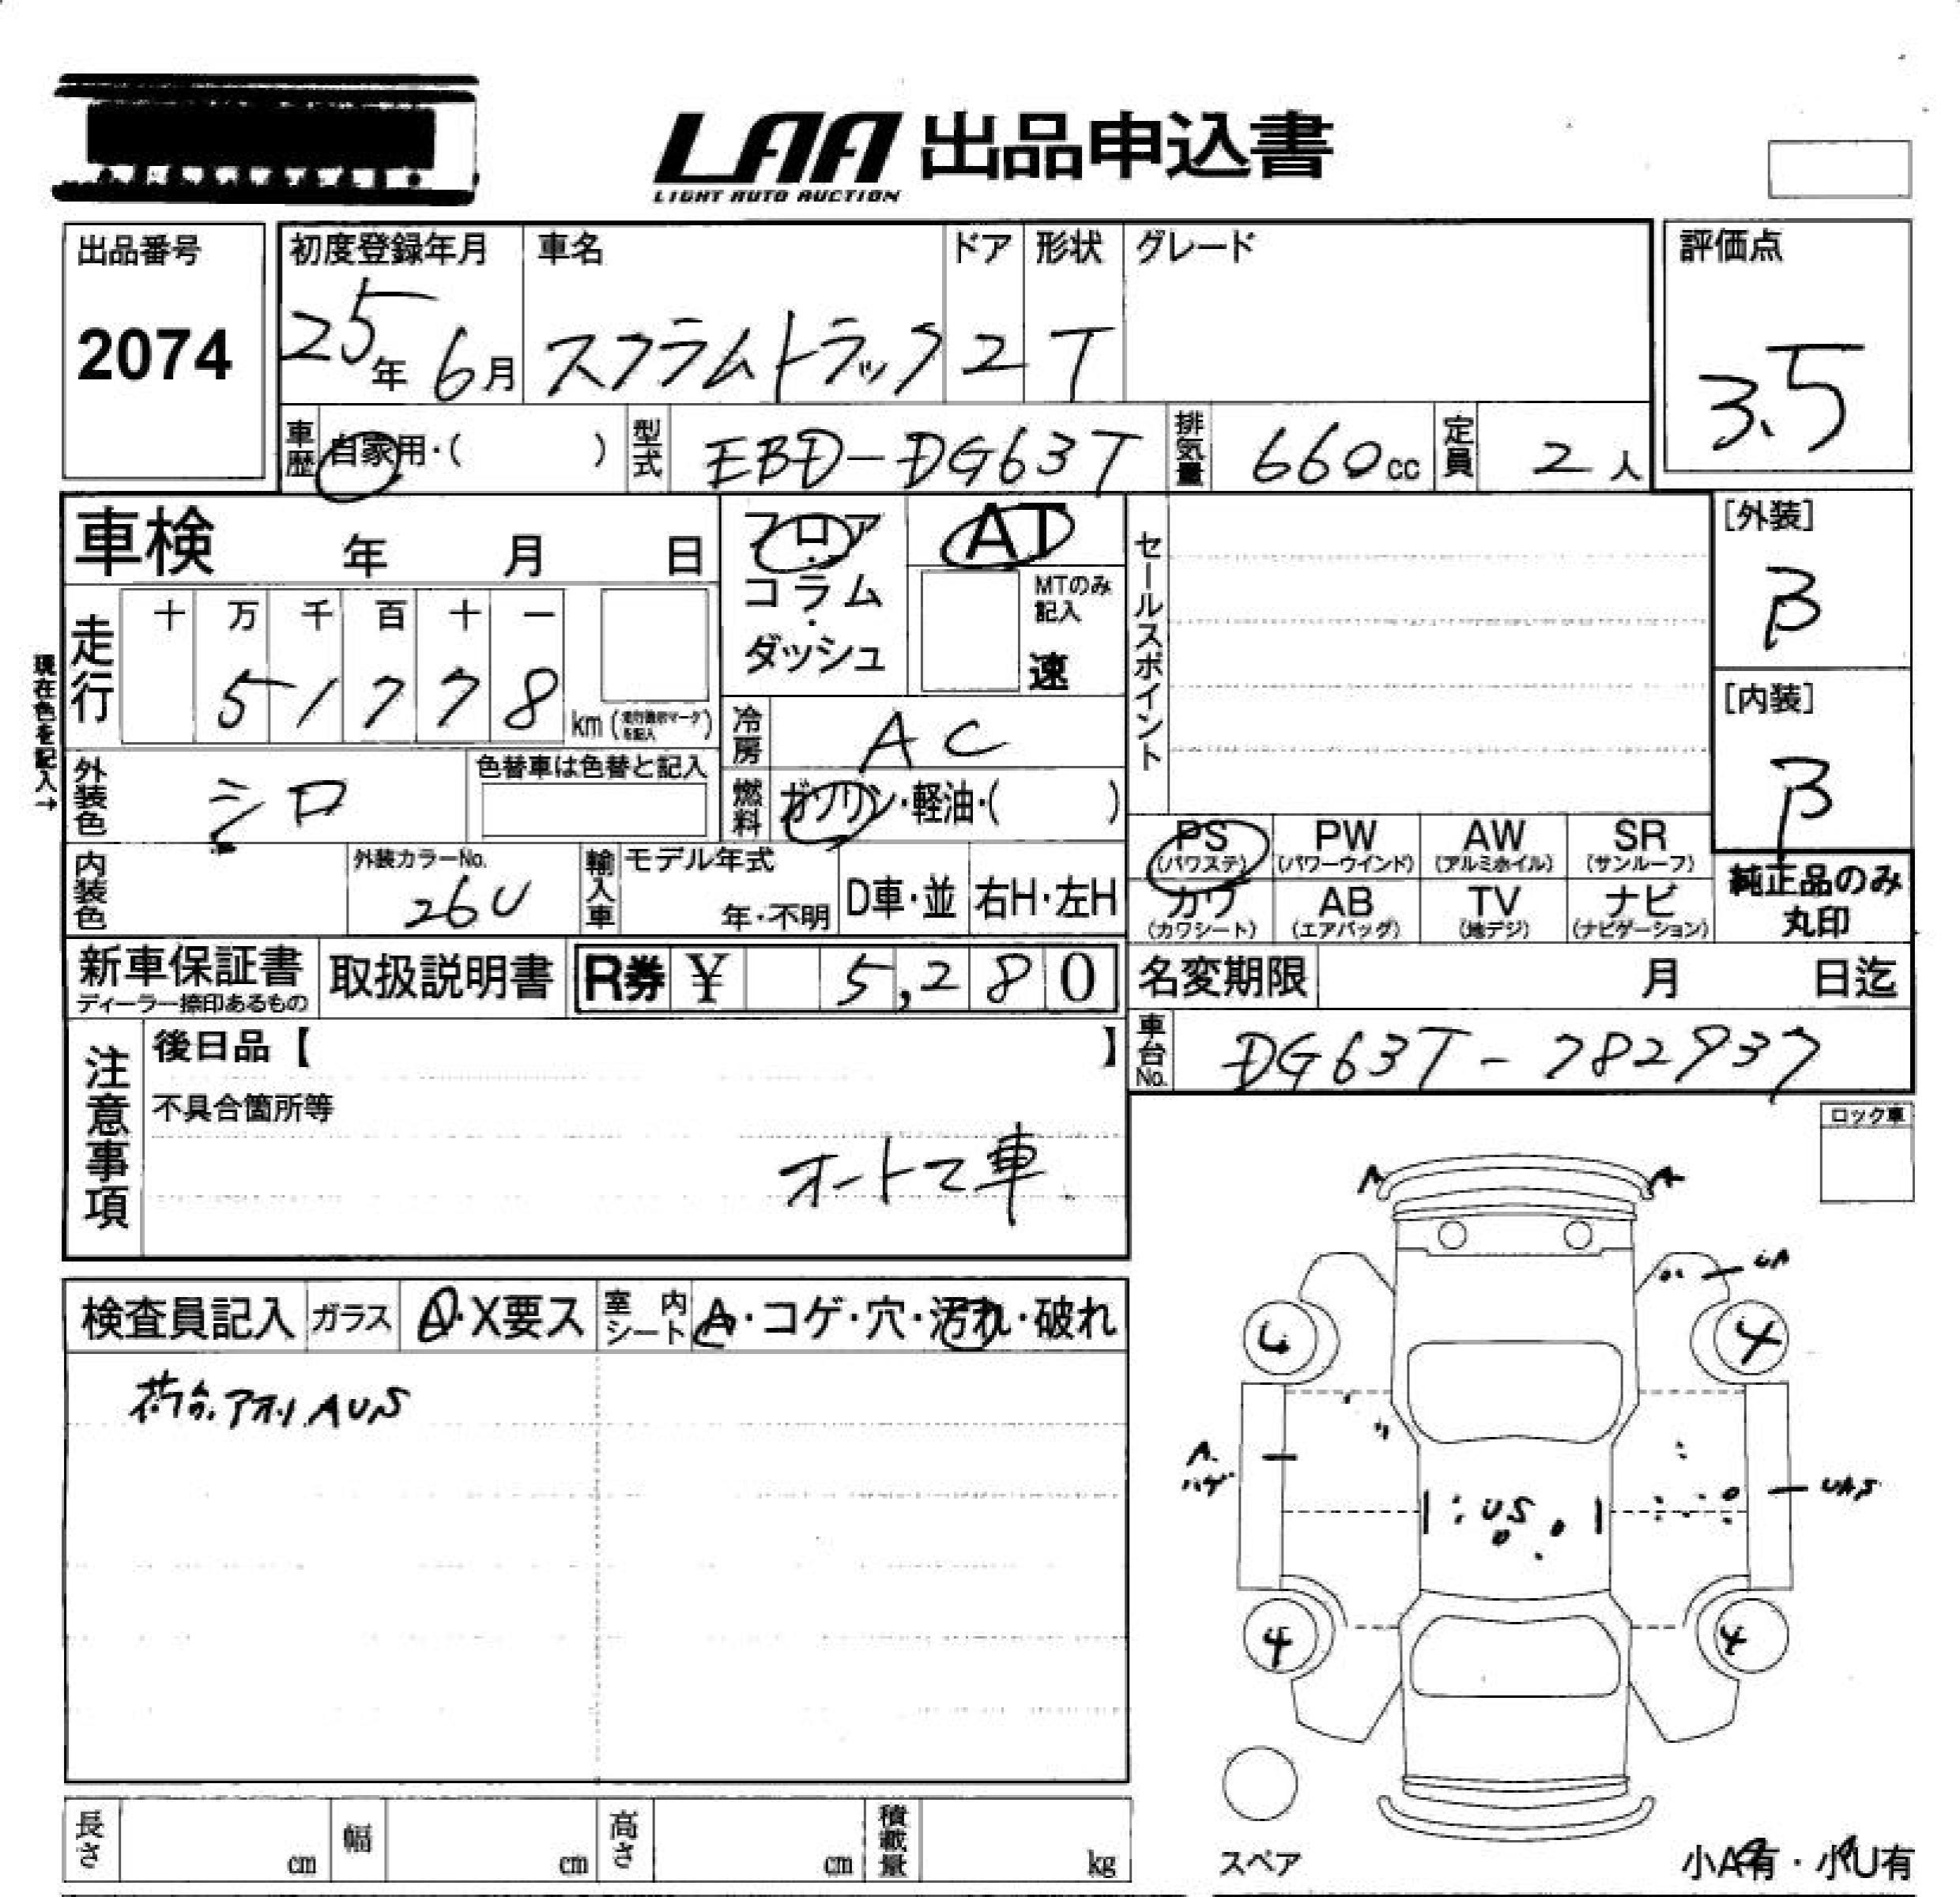 LAA 出品申込書
LIGHT AUTO AUCTION
出品番号
2074
初度登録年月
25年 6月
車名
スクラムトラック
ドア
2
形状
T
グレード
評価点
3.5
車歴 自家用・( )
型式 EBD-DG63T
排気量 660cc
定員 2人
車検 年 月 日
フロア・コラム・ダッシュ
AT
MTのみ記入
速
セールスポイント
[外装]
B
[内装]
B
現在色を記入→
走行
十 万 千 百 十 一
5 1 7 7 8
km (走行距離マークを記入)
冷房 AC
外装色 シロ
色替車は色替と記入
燃料 ガソリン・軽油・( )
PS (パワステ)
PW (パワーウインド)
AW (アルミホイル)
SR (サンルーフ)
カワ (カワシート)
AB (エアバッグ)
TV (地デジ)
ナビ (ナビゲーション)
純正品のみ
丸印
内装色
外装カラーNo.
26U
輸入車
モデル年式
年・不明
D車・並
右H・左H
新車保証書
ディーラー捺印あるもの
取扱説明書
R券 ¥ 5,280
名変期限 月 日迄
車台No. DG63T-782937
注意事項
後日品【 】
不具合箇所等
オートマ車
ロック車
検査員記入
ガラス
A・X要ス
室内シート
A・コゲ・穴・汚れ・破れ
荷台.アオリ AUS
A
A
UA
4
4
A.
ハゲ
US
UAS
4
4
スペア
長さ cm
幅 cm
高さ cm
積載量 kg
小A有・小U有